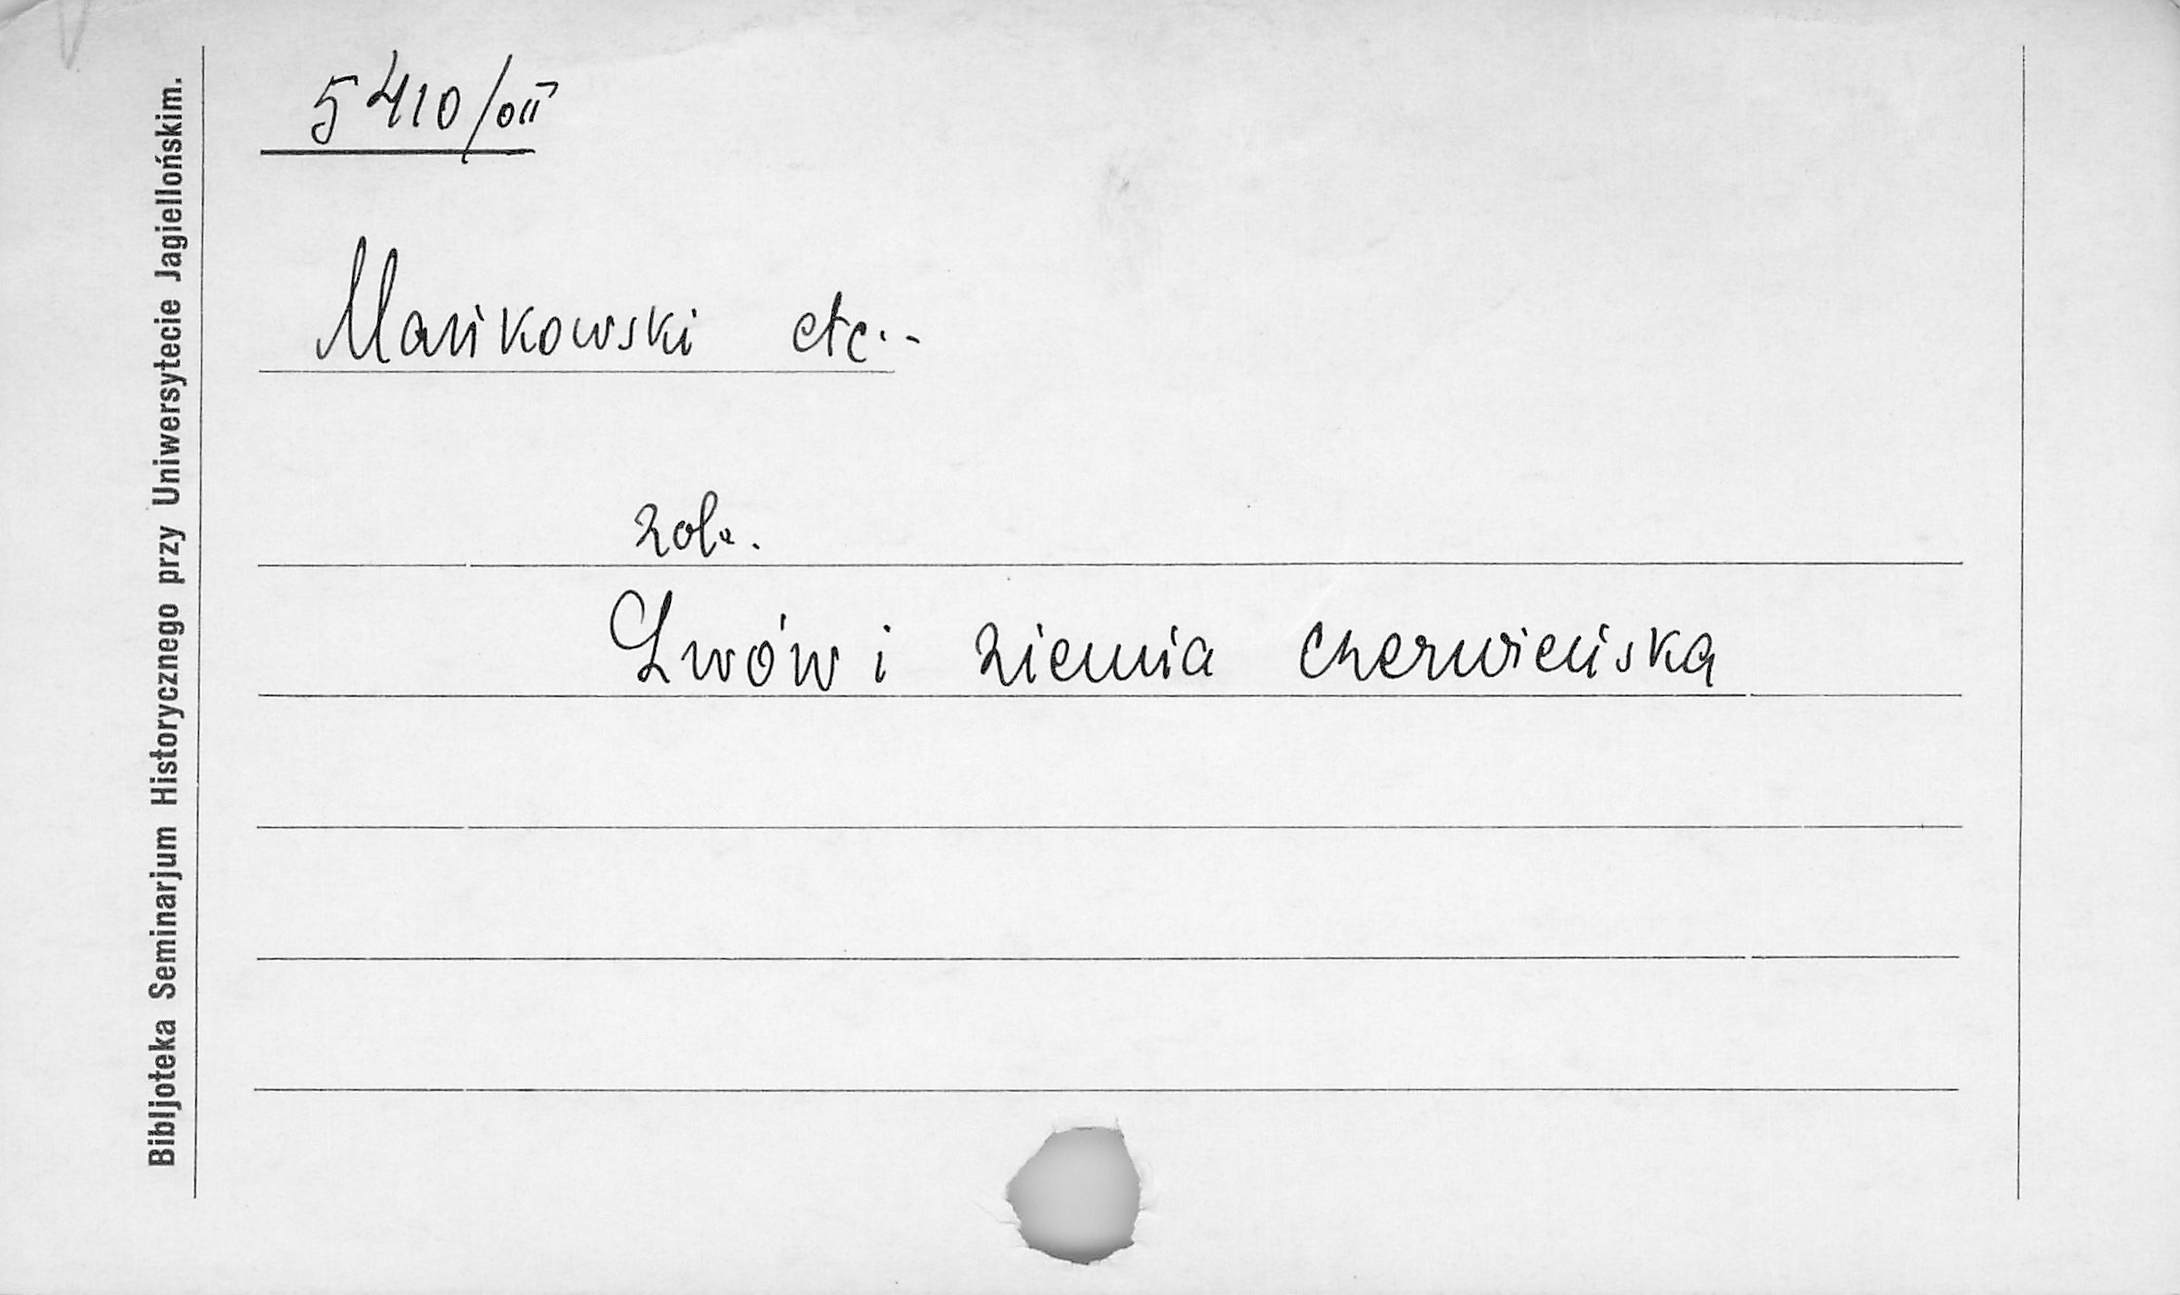 Bibljoteka Seminarjum Historycznego przy Uniwersytecie Jagiellońskim.
5410/oII
Mańkowski etc..
zob.
Lwów i ziemia czerwieńska